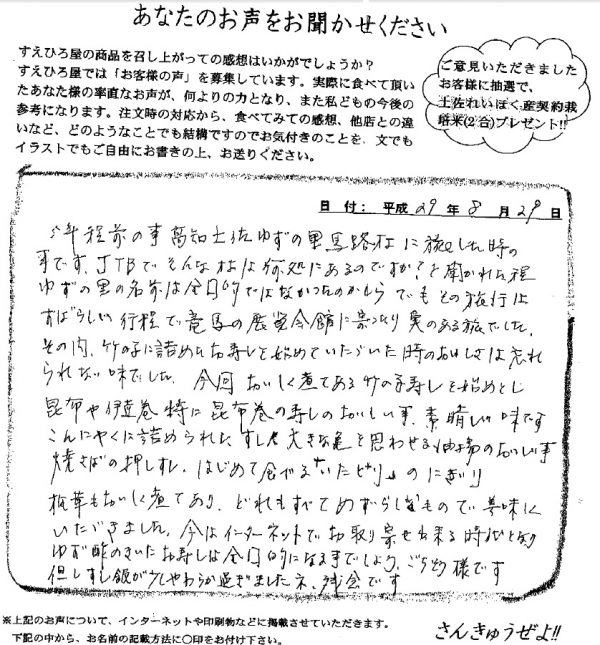 あなたのお声をお聞かせください
すえひろ屋の商品を召し上がっての感想はいかがでしょうか？
すえひろ屋では「お客様の声」を募集しています。実際に食べて頂い
たあなた様の率直なお声が、何よりの力となり、また私どもの今後の
参考になります。注文時の対応から、食べてみての感想、他店との違
いなど、どのようなことでも結構ですのでお気付きのことを、文でも
イラストでもご自由にお書きの上、お送りください。
ご意見いただきました
お客様に抽選で、
土佐れいほく産契約栽
培米(2合)プレゼント!!
日付：平成29年8月29日
年程前の事高知土佐ゆずの里馬路村に旅した時の
事です。JTBでそんな村は何処にあるのですか？と聞かれた程
ゆずの里の名前は全国的ではなかったのかしら でもその旅行は
すばらしい行程で竜馬の展覧会館に寄ったり実のある旅でした。
その内、竹の子に詰めたお寿しを始めていただいた時のおいしさは忘れ
られない味でした。今回おいしく煮てある竹の子寿しを始めとし
昆布や伊達巻 特に昆布巻の寿しのおいしい事、素晴しい味です
こんにゃくに詰められたすし 大きな亀を思わせる油揚のおいしい事
焼さばの押しすし、はじめて食べる のにぎり
椎茸もおいしく煮てあり、どれもすべてめずらしきもので美味に
いただきました。今はインターネットでお取り寄せ出来る時代となり
ゆず酢のきいたお寿しは全国的になるまでしょう、ごち 様です
但しすし飯が少しやわらか過ぎましたネ、残念です
※上記のお声について、インターネットや印刷物などに掲載させていただきます。
下記の中から、お名前の記載方法に〇印をお付け下さい。
さんきゅうぜよ!!